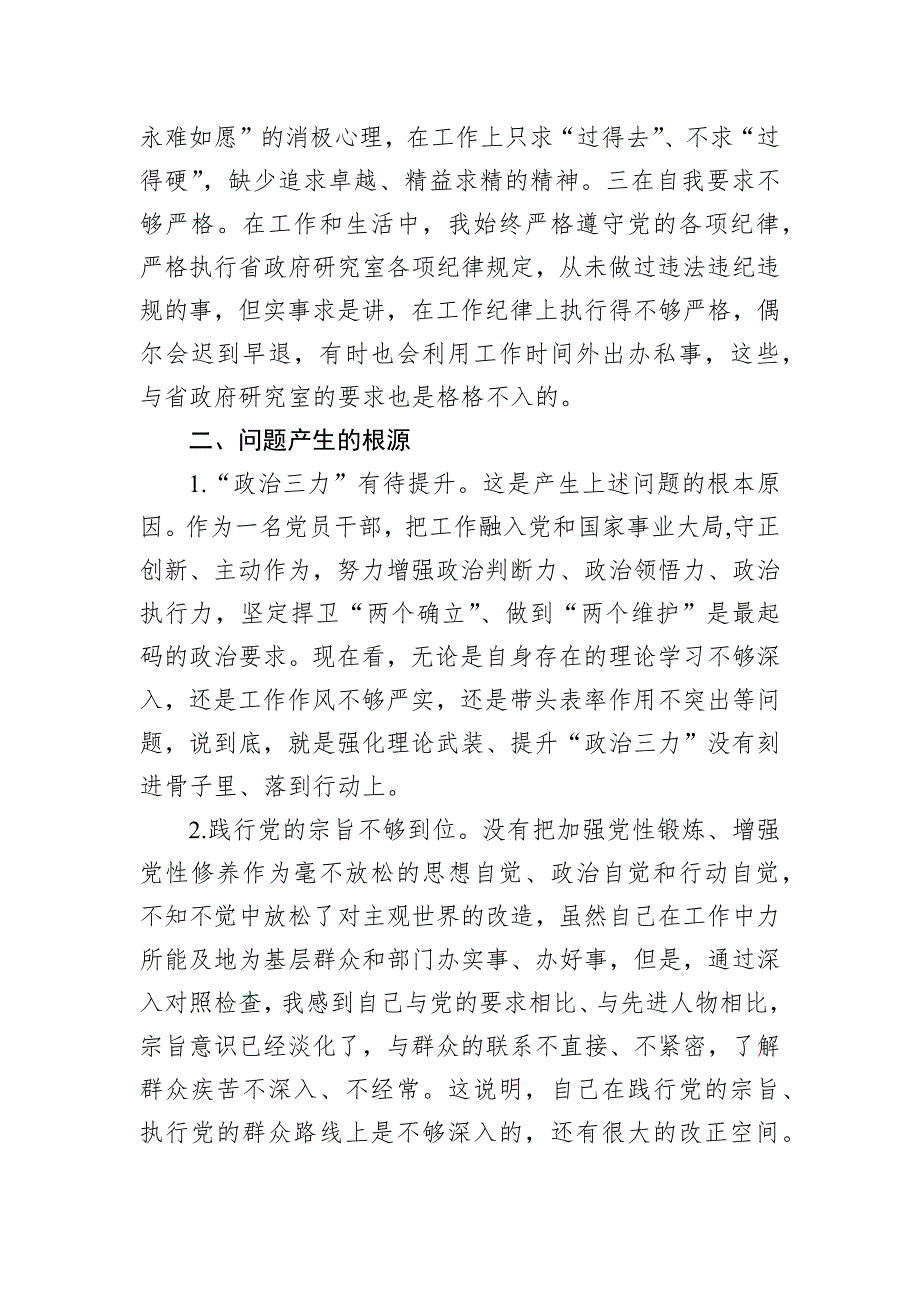 永难如愿”的消极心理，在工作上只求“过得去”、不求“过
得硬”，缺少追求卓越、精益求精的精神。三在自我要求不
够严格。在工作和生活中，我始终严格遵守党的各项纪律，
严格执行省政府研究室各项纪律规定，从未做过违法违纪违
规的事，但实事求是讲，在工作纪律上执行得不够严格，偶
尔会迟到早退，有时也会利用工作时间外出办私事，这些，
与省政府研究室的要求也是格格不入的。
二、问题产生的根源
1.“政治三力”有待提升。这是产生上述问题的根本原
因。作为一名党员干部，把工作融入党和国家事业大局,守正
创新、主动作为，努力增强政治判断力、政治领悟力、政治
执行力，坚定捍卫“两个确立”、做到“两个维护”是最起
码的政治要求。现在看，无论是自身存在的理论学习不够深
入，还是工作作风不够严实，还是带头表率作用不突出等问
题，说到底，就是强化理论武装、提升“政治三力”没有刻
进骨子里、落到行动上。
2.践行党的宗旨不够到位。没有把加强党性锻炼、增强
党性修养作为毫不放松的思想自觉、政治自觉和行动自觉，
不知不觉中放松了对主观世界的改造，虽然自己在工作中力
所能及地为基层群众和部门办实事、办好事，但是，通过深
入对照检查，我感到自己与党的要求相比、与先进人物相比，
宗旨意识已经淡化了，与群众的联系不直接、不紧密，了解
群众疾苦不深入、不经常。这说明，自己在践行党的宗旨、
执行党的群众路线上是不够深入的，还有很大的改正空间。